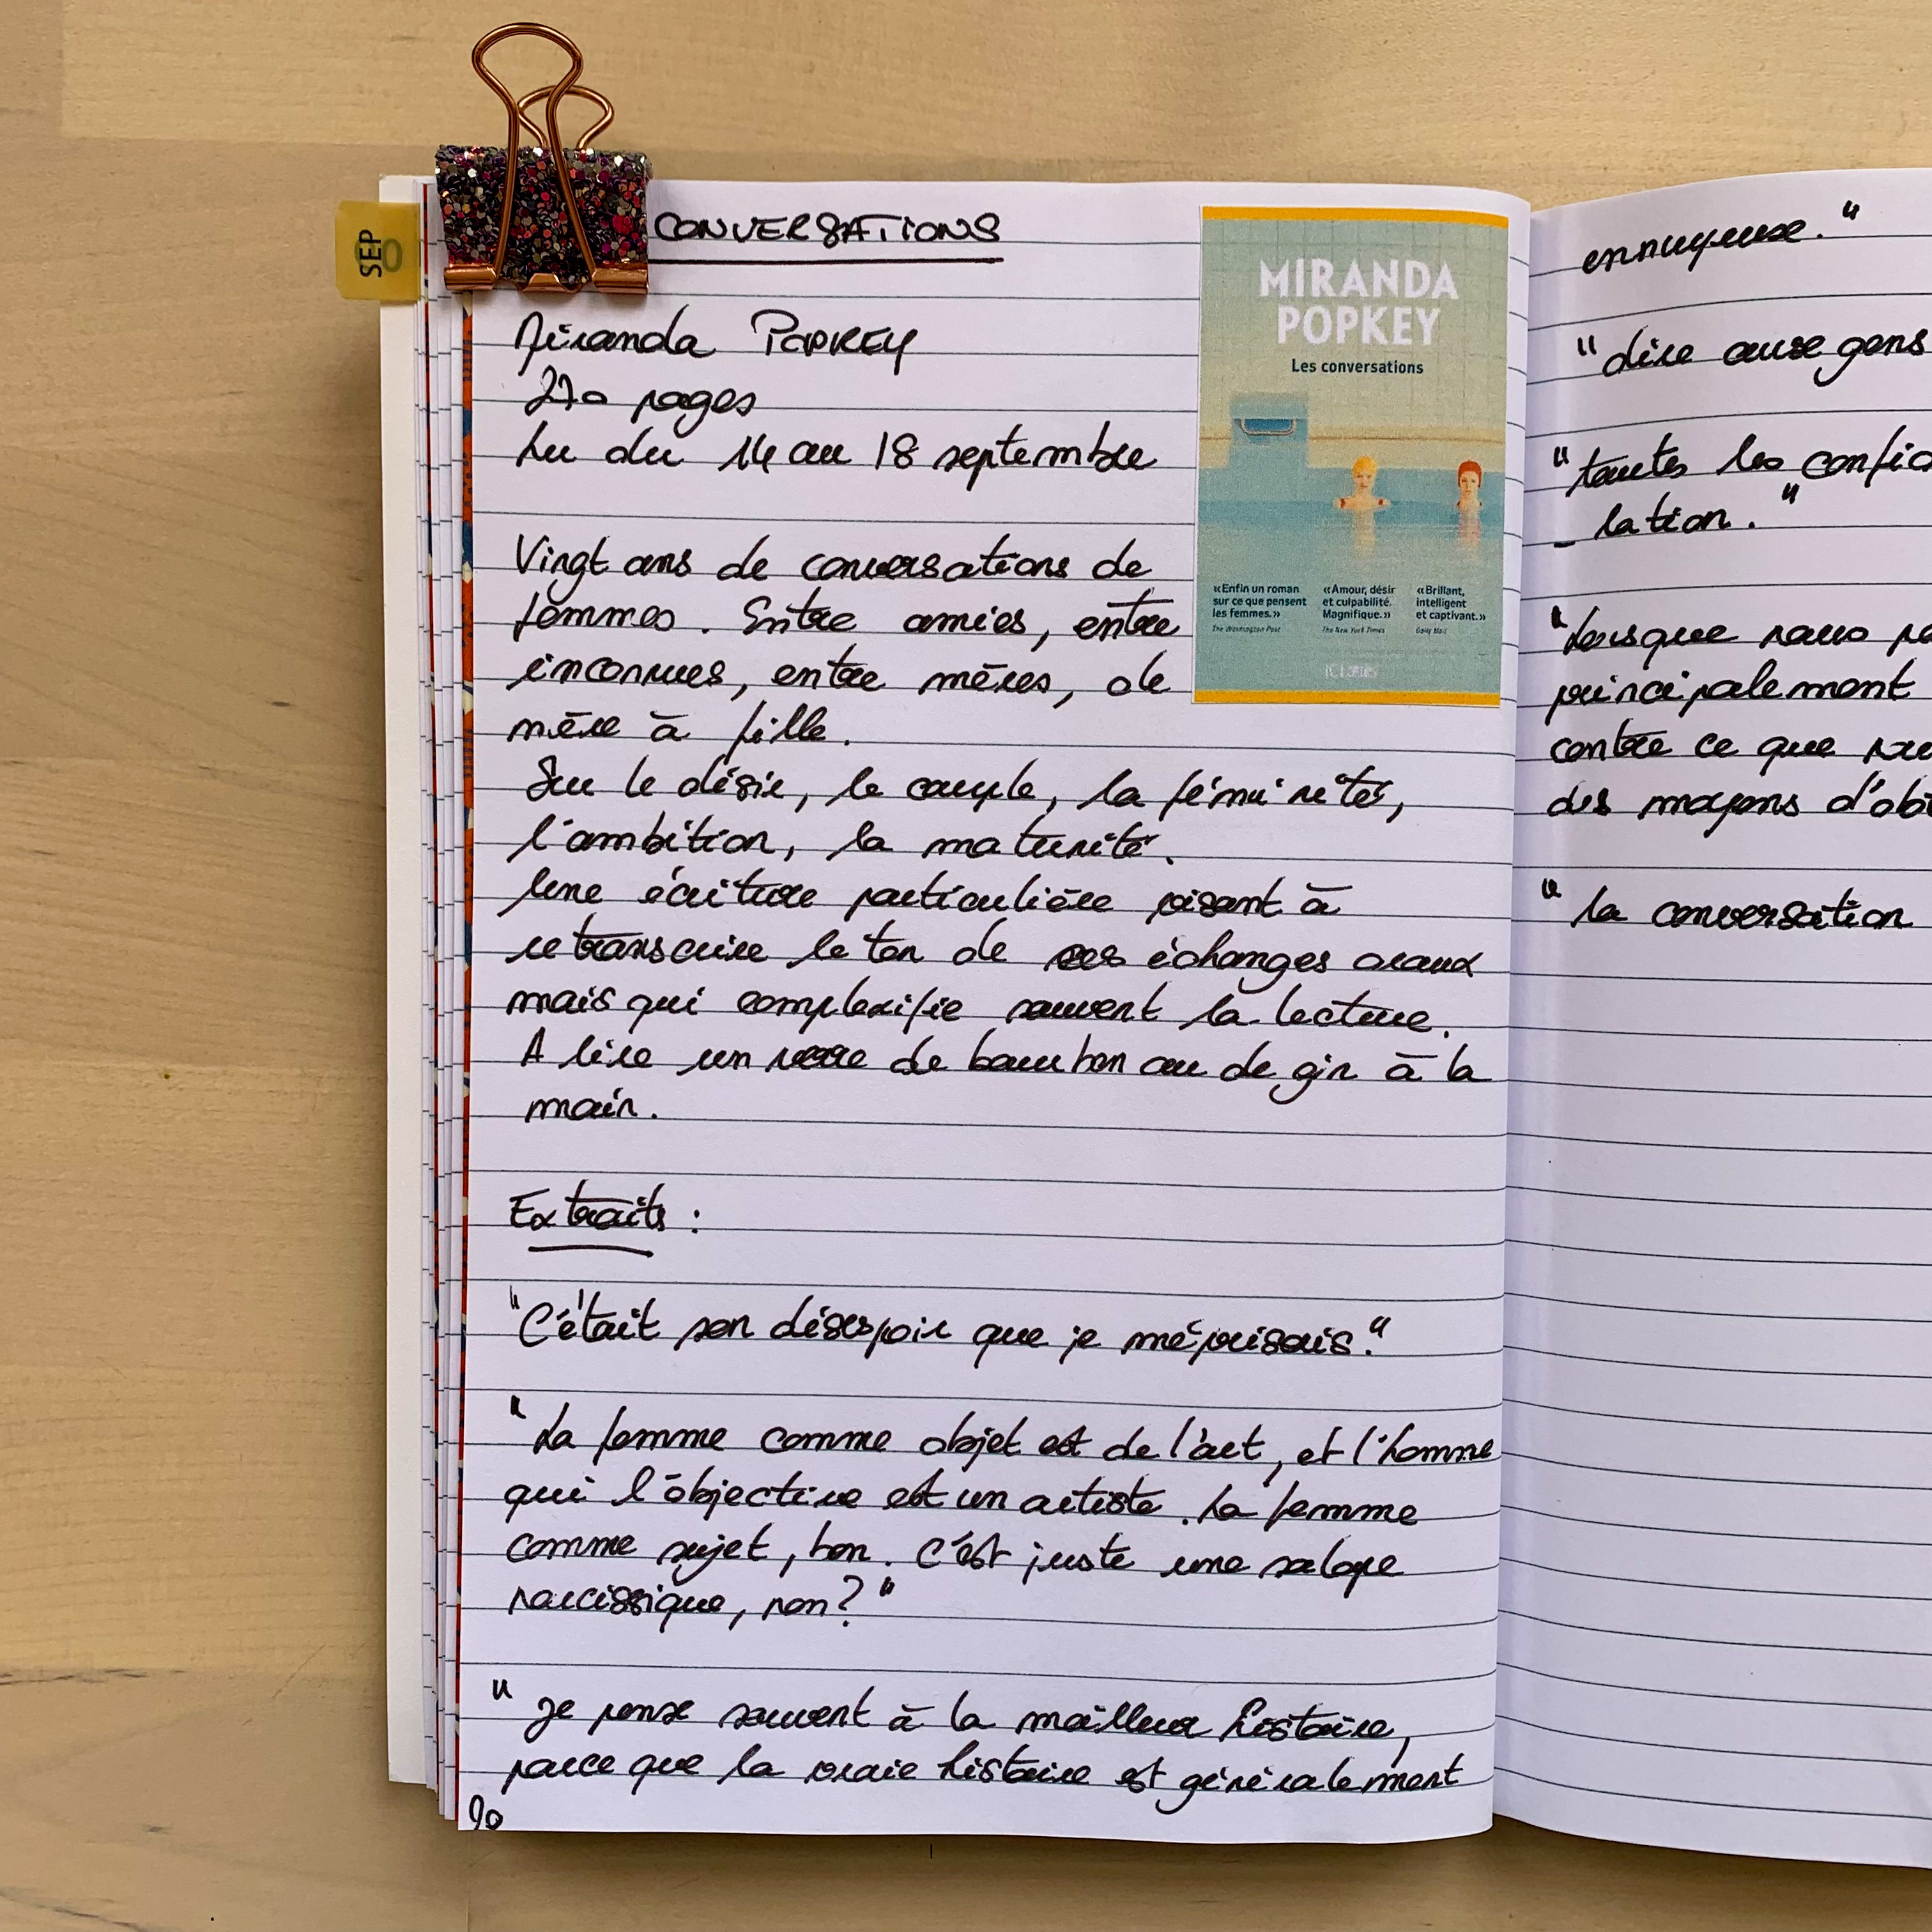 SEP
CONVERSATIONS
Miranda POPKEY
270 pages
Lu du 14 au 18 septembre
MIRANDA
POPKEY
Les conversations
«Enfin un roman
sur ce que pensent
les femmes.»
The Washington Post
«Amour, désir
et culpabilité.
Magnifique.»
The New York Times
«Brillant,
intelligent
et captivant.»
Daily Mail
Vingt ans de conversations de
femmes. Entre amies, entre
inconnues, entre mères, de
mère à fille.
Sur le désir, le couple, la féminité,
l'ambition, la maturité.
Une écriture particulière visant à
retranscrire le ton de ses échanges oraux
mais qui complexifie souvent la lecture.
A lire un verre de bourbon ou de gin à la
main.
Extraits :
"C'était son désespoir que je méprisais."
"La femme comme objet est de l'art, et l'homme
qui l'objective est un artiste. La femme
comme sujet, bon. C'est juste une salope
narcissique, non?"
"Je pense souvent à la meilleur histoire,
parce que la vraie histoire est généralement
90
ennuyeuse."
"dire aux gens
"toutes les
_ lation."
"Lorsque nous
principalement
contre ce que
des moyens
"la conversation